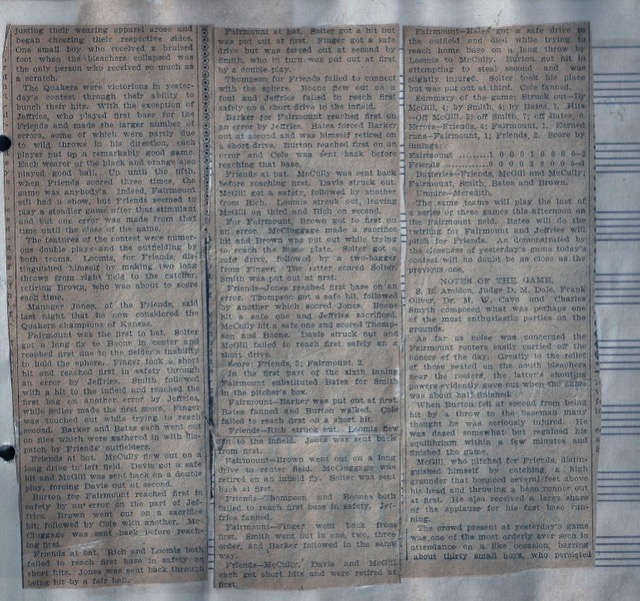 justing their wearing apparel arose and
began cheering their respective sides.
One small boy who received a bruised
foot when the bleachers collapsed was
the only person who received so much as
a scratch.
The Quakers were victorious in yester-
day's contest through their ability to
bunch their hits. With the exception of
Jeffries, who played first base for the
Friends and made the larger number of
errors, some of which were partly due
to wild throws in his direction, each
player put up a remarkably good game.
Each wearer of the black and orange also
played good ball. Up until the fifth,
when Friends scored three times, the
game was anybody's. Indeed, Fairmount
still had a show, but Friends seemed to
play a steadier game after that stimulant
and but one error was made from that
time until the close of the game.
The features of the contest were numer-
ous double plays and the outfielding by
both teams. Loomis, for Friends, dis-
tinguished himself by making two long
throws from right field to the catcher,
retiring Brown, who was about to score
each time.
Manager Jones, of the Friends, said
last night that he now considered the
Quakers champions of Kansas.
Fairmount was the first to bat. Solter
got a long fly to Boone in center and
reached first due to the fielder's inability
to hold the sphere. Finger took a short
hit and reached first in safety through
an error by Jeffries. Smith followed
with a hit to the infield and reached the
first bag on another error by Jeffries,
while Solter made the first score. Finger
was touched out while trying to reach
second. Barker and Bates each went out
on flies which were gathered in with dis-
patch by Friends' outfielders.
Friends at bat. McCully flew out on a
long drive to left field. Davis got a safe
hit and McGill was sent back on a double
play, forcing Davis out at second.
Burton for Fairmount reached first in
safety by an error on the part of Jef-
fries. Brown went out on a sacrifice
hit, followed by Cole with another. Mc-
Cluggage was sent back before reach-
ing first.
Friends at bat. Rich and Loomis both
failed to reach first base in safety on
short hits. Jones was sent back through
being hit by a fair ball.
Fairmount at bat. Solter got a hit but
was put out at first. Finger got a safe
drive but was forced out at second by
Smith, who in turn was put out at first
by a double play.
Thompson for Friends failed to connect
with the sphere. Boone flew out on a
foul and Jeffries failed to reach first
safely on a short drive to the infield.
Barker for Fairmount reached first on
an error by Jeffries. Bates forced Barker
out at second and was himself retired on
a short drive. Burton reached first on an
error and Cole was sent back before
reaching that base.
Friends at bat. McCully was sent back
before reaching first. Davis struck out.
McGill got a safety, followed by another
from Rich. Loomis struck out, leaving
McGill on third and Rich on second.
For Fairmount, Brown got to first on
an error. McCluggage made a sacrifice
hit and Brown was put out while trying
to reach the home plate. Solter got a
safe drive, followed by a two-bagger
from Finger. The latter scored Solter.
Smith was put out at first.
Friends—Jones reached first base on an
error. Thompson got a safe hit, followed
by another which scored Jones. Boone
hit a safe one and Jeffries sacrificed.
McCully hit a safe one and scored Thomp-
son and Boone. Davis struck out and
McGill failed to reach first safely on a
short drive.
Score: Friends, 3; Fairmount, 2.
In the first part of the sixth inning
Fairmount substituted Bates for Smith
in the pitcher's box.
Fairmount—Barker was put out at first.
Bates fanned and Burton walked. Cole
failed to reach first on a short hit.
Friends—Rich struck out. Loomis flew
to the infield. Jones was sent back
from first.
Fairmount—Brown went out on a long
drive to center field. McCluggage was
retired on an infold fly. Solter was sent
back at first.
Friends—Thompson and Boone both
failed to reach first base in safety. Jef-
fries fanned.
Fairmount—Finger went back from
first. Smith went out in one, two, three
order, and Barker followed in the same
way.
Friends—McCully, Davis and McGill
each got short hits and were retired at
first.
Fairmount—Bates got a safe drive to
the outfield and died while trying to
reach home base on a long throw by
Loomis to McCully. Burton got hit in
attempting to steal second and was
slightly injured. Solter took his place
but was put out at third. Cole fanned.
Summary of the game: Struck out—By
McGill, 4; by Smith, 4; by Bates, 1. Hits
—Off McGill, 5; off Smith, 7; off Bates, 0.
Errors—Friends, 4; Fairmount, 1. Earned
runs—Fairmount, 1; Friends, 2. Score by
innings:
Fairmount ........1 0 0 0 1 0 0 0 0—2
Friends ...........0 0 0 0 3 0 0 0 —3
Batteries—Friends, McGill and McCully;
Fairmount, Smith, Bates and Brown.
Umpire—Meredith.
The same teams will play the last of
a series of three games this afternoon on
the Fairmount field. Bates will do the
twirling for Fairmount and Jeffries will
pitch for Friends. As demonstrated by
the closeness of yesterday's game today's
contest will no doubt be as close as the
previous one.
NOTES OF THE GAME.
S. B. Amidon, Judge D. M. Dale, Frank
Oliver, Dr. M. W. Cave and Charles
Smyth composed what was perhaps one
of the most enthusiastic parties on the
grounds.
As far as noise was concerned the
Fairmount rooters easily carried off the
honors of the day. Greatly to the relief
of those seated on the south bleachers
near the rooters, the latter's shouting
powers evidently gave out when the game
was about half finished.
When Burton fell at second from being
hit by a throw to the baseman many
thought he was seriously injured. He
was dazed somewhat but regained his
equilibrium within a few minutes and
finished the game.
McGill, who pitched for Friends, distin-
guished himself by catching a high
grounder that bounced several feet above
his head and throwing a base runner out
at first. He also received a large share
of the applause for his fast base run-
ning.
The crowd present at yesterday's game
was one of the most orderly ever seen in
attendance on a like occasion, barring
about thirty small boys, who persisted